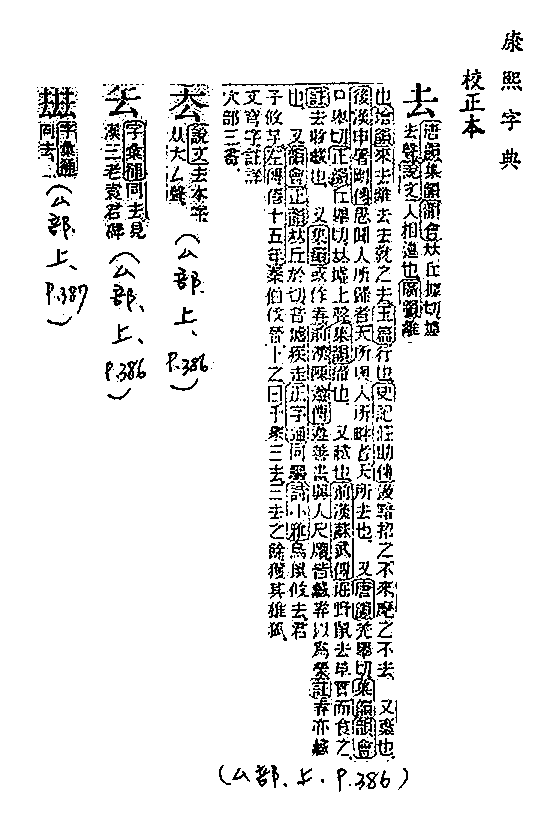 康熙字典
校正本
去 唐韻集韻韻會𠀤丘據切墟
去聲說文人相違也廣韻離
也增韻來去離去去就之去玉篇行也史記莊助傳汲黯招之不來麾之不去 又棄也
後漢申屠剛傳愚聞人所歸者天所與人所畔者天所去也 又唐韻羌舉切集韻韻會
口舉切正韻丘舉切𠀤墟上聲集韻徹也 又藏也前漢蘇武傳掘野鼠去草實而食之
註去收藏也 又集韻或作弆前漢陳遵傳遵善書與人尺牘皆藏弆以爲榮註弆亦藏
也 又韻會正韻𠀤丘於切音墟疾走正字通同驅詩小雅鳥鼠攸去君
子攸芋左傳僖十五年秦伯伐晉卜之曰千乘三去三去之餘獲其雄狐
字註詳
穴部三畫
(厶部、上、P.386)
厺 說文去本字
从大𠙴聲
(厶部、上、P.386)
字彙補同去見
漢三老袁君碑
(厶部、上、P.386)
字彙補
同去
(厶部、上、P.387)